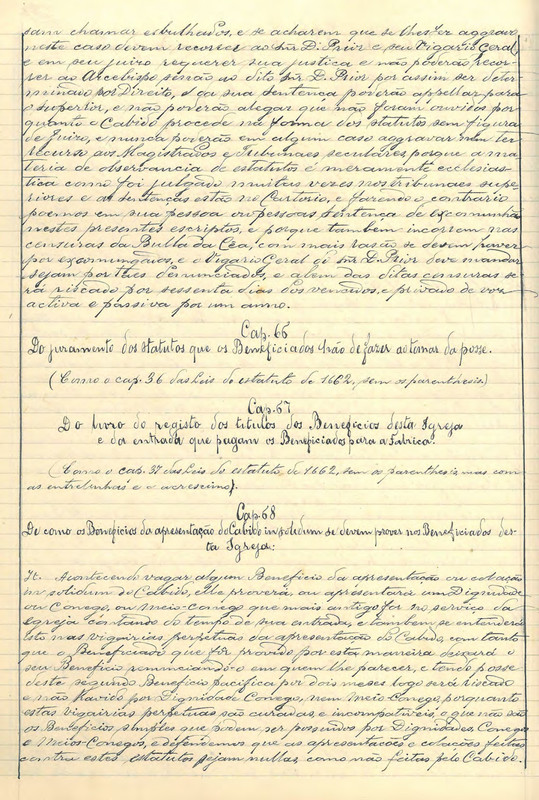 sam chamar esbulhados, e se acharem que se lhes fez aggravo
neste caso devem recorrer ao Snr D. Prior e seu Vigario Geral,
e em seu juizo requerer sua justiça e não poderão recor-
rer ao Arcebispo senão ao dito Snr D. Prior por assim ser deter-
minado por Direito, e da sua sentença poderão appellar para
o superior, e não poderão alegar que não foram ouvidos por
quanto o Cabido procede na forma dos statutos sem figura
de Juizo, e nunca poderão em algum caso aggravar nem ter
recurso aos Magistrados e Tribunaes seculares, porque a ma-
teria de observancia de estatutos é meramente ecclesias-
tica como foi julgado muitas vezes nos tribunaes supe-
riores e as sentenças estão no Cartorio, e fazendo o contrario
poemos em sua pessoa ou pessoas sentença de excomunhão
nestes presentes escriptos, e porque tambem incorrem nas
censuras da Bulla da Cêa, com mais rasão se devem haver
por excomungados, e o Vigario Geral do Snr D. Prior deve mandar
sejam por tres denunciados, e alem das ditas censuras se-
rá riscado por sessenta dias dos vencidos, e privado de voz
activa e passiva por um anno.
Cap. 66
Do juramento dos statutos que os Beneficiados hão de fazer ao tomar da posse.
(Como o cap. 36 das Leis do estatuto de 1662, sem os parenthesis.)
Cap. 67
Do livro do registo dos titulos dos Beneficios desta Igreja
e da entrada que pagam os Beneficiados para a Fabrica.
(Como o cap. 37 das Leis do estatuto de 1662, sem os parenthesis, mas com
as entrelinhas e o acrescimo).
Cap. 68
De como os Beneficios da apresentação do Cabido in solidum se devem prover nos Beneficiados des-
ta Igreja:
It. Acontecendo vagar algum Beneficio da apresentação ou colação
in solidum do Cabido, elle proverá, ou apresentará um Dignidade
ou Conego, ou meio-conego que mais antigo for no serviço da
Egreja contando do tempo de sua entrada, e tambem se entenderá
isto nas vigairias perpetuas da apresentação do Cabido, com tanto
que o Beneficiado que fôr provido por esta maneira deixará o
seu Beneficio renunciando-o em quem lhe parecer, e tendo posse
deste segundo Beneficio pacifica por dois meses logo será riscado
e não havido por Dignidade Conego, nem Meio-Conego, porquanto
estas vigairias perpetuas são curadas, e incompativeis, o que não são
os Beneficios simples que podem ser possuidos por Dignidades, Conegos
e Meios-Conegos, e defendemos que as apresentações e colações feitas
contra estes Estatutos sejam nullas, como não feitas pelo Cabido.